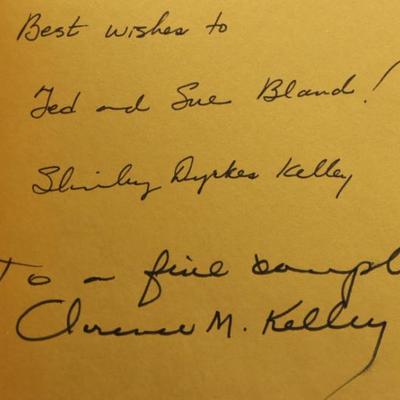 Best wishes to
Ted and Sue Bland!
Shirley Dyrkes Kelley
To a fine coupl
Clarence M. Kelley